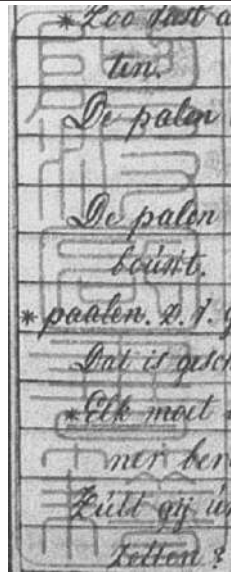 * Zoo vast a
ten.
De palen
De palen
bouwt.
* paalen. Z. f. g
Dat is gesch
* Elk moet
ner ben
Zult gij u
zetten?